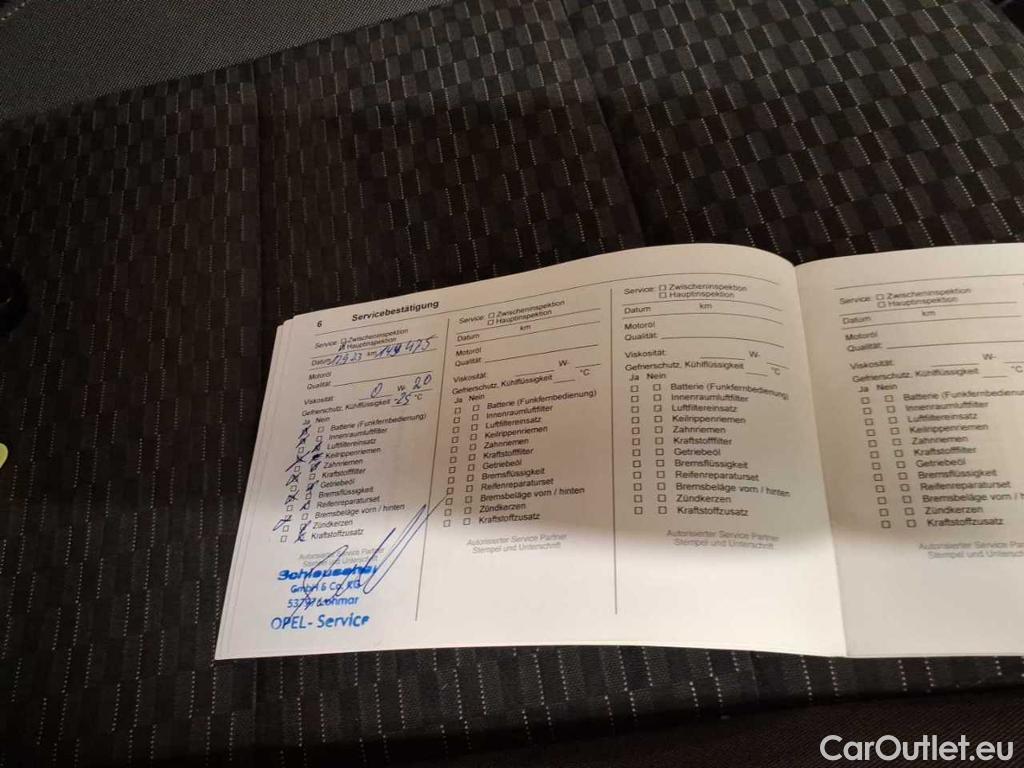 6 Servicebestätigung
Service: Zwischeninspektion
Hauptinspektion
Datum km 149 475
Motoröl
Qualität:
Viskosität: 0 W- 20
Gefrierschutz, Kühlflüssigkeit -25 °C
Ja Nein
Batterie (Funkfernbedienung)
Innenraumluftfilter
Luftfiltereinsatz
Keilrippenriemen
Zahnriemen
Kraftstofffilter
Getriebeöl
Bremsflüssigkeit
Reifenreparaturset
Bremsbeläge vorn / hinten
Zündkerzen
Kraftstoffzusatz
Autorisierter Service Partner
Stempel und Unterschrift
GmbH & Co. KG
Lohmar
OPEL-Service
Service: Zwischeninspektion
Hauptinspektion
Datum km
Motoröl
Qualität:
Viskosität: W-
Gefrierschutz, Kühlflüssigkeit °C
Ja Nein
Batterie (Funkfernbedienung)
Innenraumluftfilter
Luftfiltereinsatz
Keilrippenriemen
Zahnriemen
Kraftstofffilter
Getriebeöl
Bremsflüssigkeit
Reifenreparaturset
Bremsbeläge vorn / hinten
Zündkerzen
Kraftstoffzusatz
Autorisierter Service Partner
Stempel und Unterschrift
Service: Zwischeninspektion
Hauptinspektion
Datum km
Motoröl
Qualität:
Viskosität: W-
Gefrierschutz, Kühlflüssigkeit °C
Ja Nein
Batterie (Funkfernbedienung)
Innenraumluftfilter
Luftfiltereinsatz
Keilrippenriemen
Zahnriemen
Kraftstofffilter
Getriebeöl
Bremsflüssigkeit
Reifenreparaturset
Bremsbeläge vorn / hinten
Zündkerzen
Kraftstoffzusatz
Autorisierter Service Partner
Stempel und Unterschrift
Service: Zwischeninspektion
Hauptinspektion
Datum km
Motoröl
Qualität:
Viskosität: W-
Gefrierschutz, Kühlflüssigkeit °C
Ja Nein
Batterie
Innenraumluftfilter
Luftfiltereinsatz
Keilrippenriemen
Zahnriemen
Kraftstofffilter
Getriebeöl
Bremsflüssigkeit
Reifenreparaturset
Bremsbeläge vorn / hinten
Zündkerzen
Kraftstoffzusatz
Autorisierter Service Partner
Stempel und Unterschrift
CarOutlet.eu